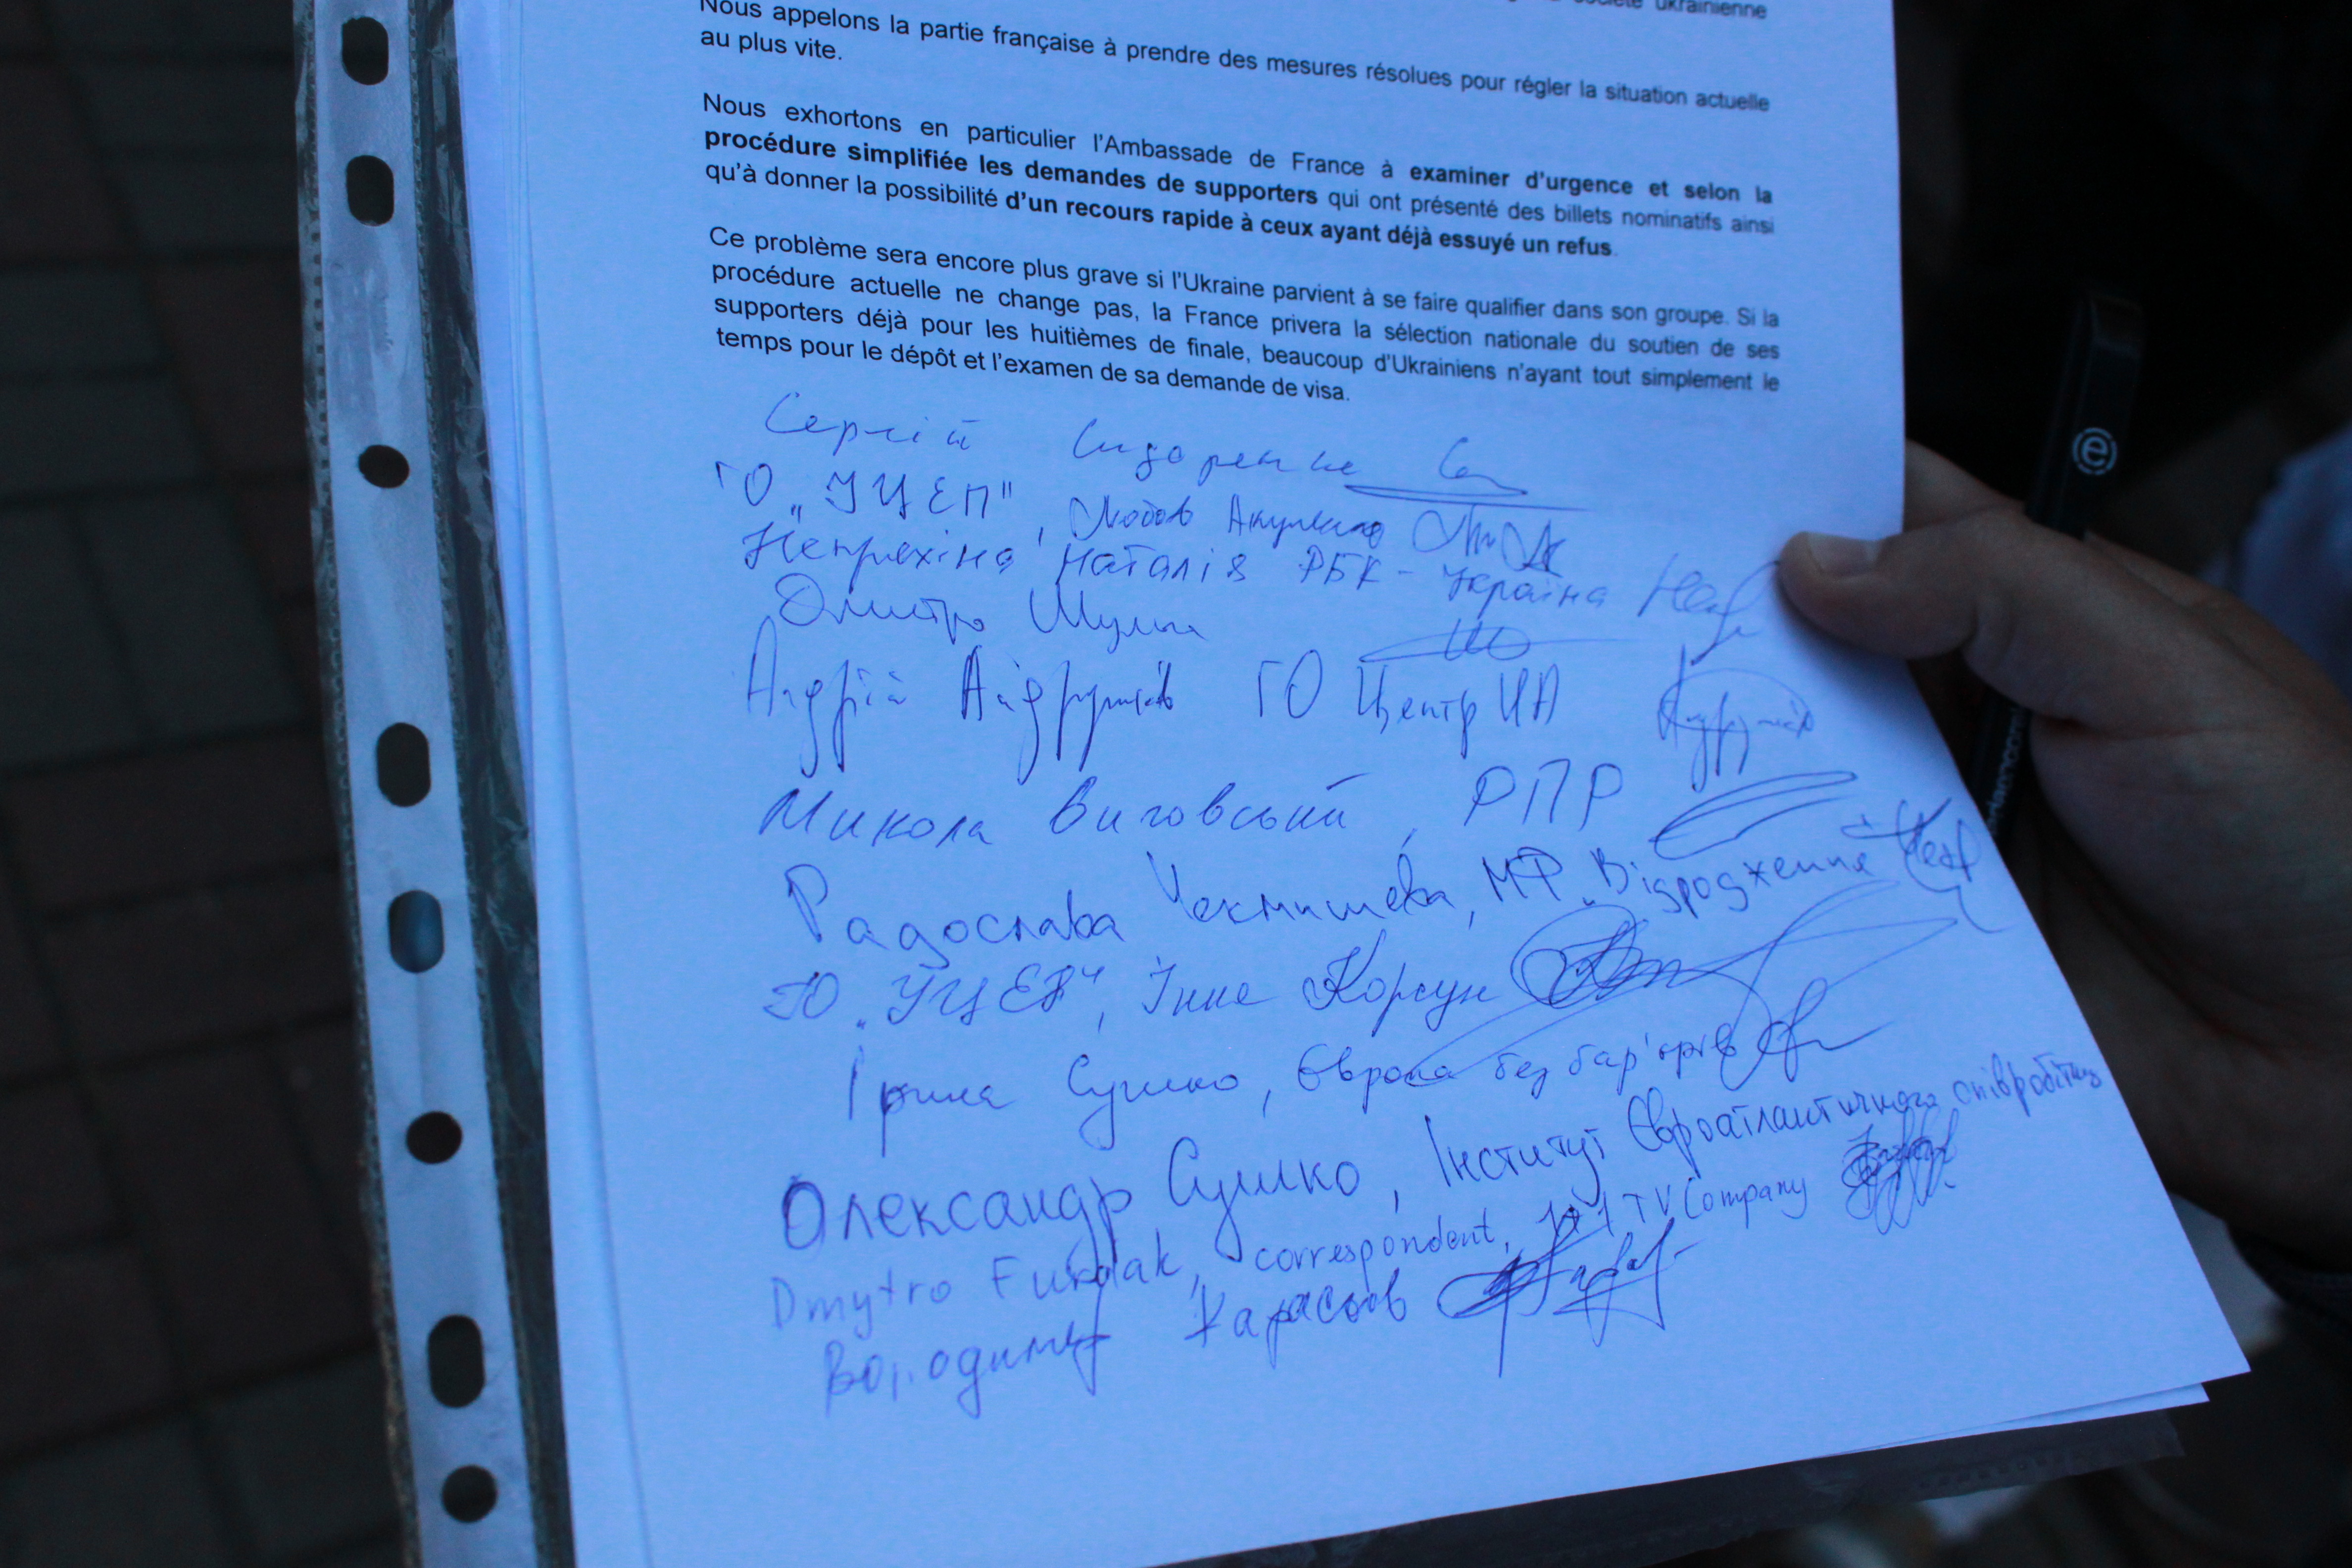 ukrainienne
Nous appelons la partie française à prendre des mesures résolues pour régler la situation actuelle
au plus vite.
Nous exhortons en particulier l'Ambassade de France à examiner d'urgence et selon la
procédure simplifiée les demandes de supporters qui ont présenté des billets nominatifs ainsi
qu'à donner la possibilité d'un recours rapide à ceux ayant déjà essuyé un refus.
Ce problème sera encore plus grave si l'Ukraine parvient à se faire qualifier dans son groupe. Si la
procédure actuelle ne change pas, la France privera la sélection nationale du soutien de ses
supporters déjà pour les huitièmes de finale, beaucoup d'Ukrainiens n'ayant tout simplement le
temps pour le dépôt et l'examen de sa demande de visa.
Сергій Сидоренко
ГО „УЦЕП", Любов Акуленко
Непряхіна Наталія РБК-Україна
Дмитро Шульга
Андрій Андрусів ГО Центр UA
Микола Виговський, РПР
Радослава Чекмишева, МФ „Відродження
ГО „УЦЕП", Інна Корсун
Ірина Сушко, Європа без бар'єрів
Олександр Сушко, Інститут Євроатлантичного співробітництва
Dmytro Furdak, correspondent, 1+1 TV Company
Володимир Карасьов